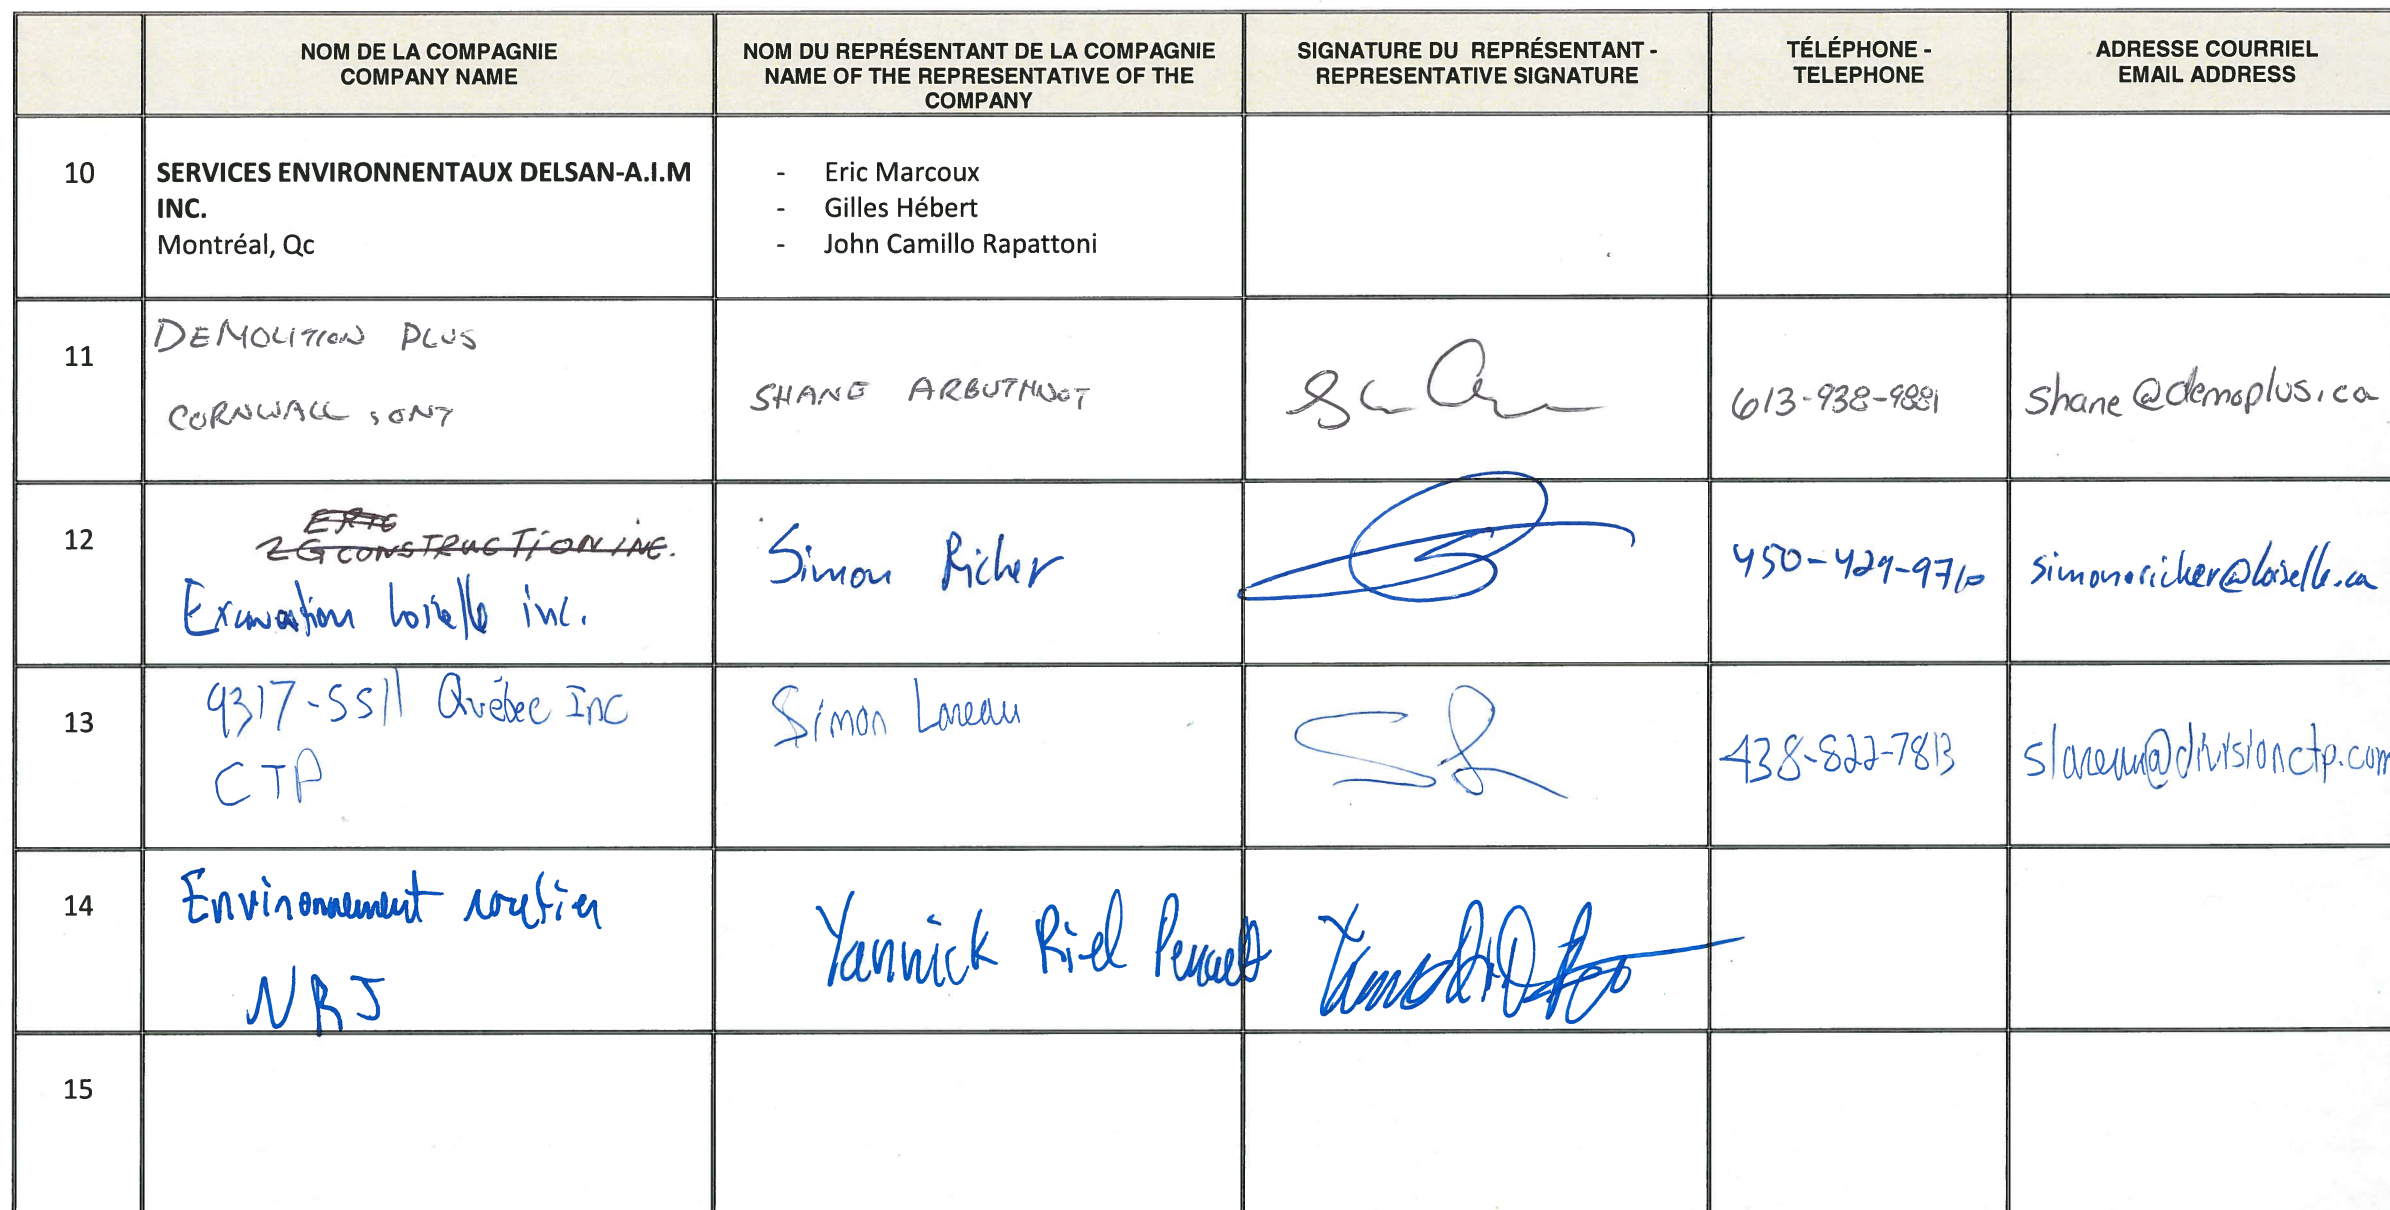 NOM DE LA COMPAGNIE
COMPANY NAME
NOM DU REPRÉSENTANT DE LA COMPAGNIE
NAME OF THE REPRESENTATIVE OF THE
COMPANY
SIGNATURE DU REPRÉSENTANT -
REPRESENTATIVE SIGNATURE
TÉLÉPHONE -
TELEPHONE
ADRESSE COURRIEL
EMAIL ADDRESS
10
SERVICES ENVIRONNENTAUX DELSAN-A.I.M
INC.
Montréal, Qc
- Eric Marcoux
- Gilles Hébert
- John Camillo Rapattoni
11
DEMOLITION PLUS
CORNWALL, ONT
SHANE ARBUTHNOT
613-938-9881
shane@demoplus.ca
12
2G CONSTRUCTION INC.
Excavation loiselle inc.
Simon Richer
450-429-9710
simon.richer@loiselle.ca
13
9317-5511 Québec Inc
CTP
Simon Lareau
438-822-7813
slareau@divisionctp.com
14
Environnement routier
NRJ
Yannick Riel Perreault
15